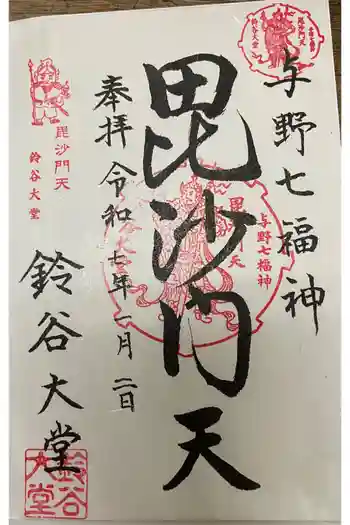 与野七福神
毘沙門天
奉拝 令和七年一月二日
鈴谷大堂
毘沙門天
鈴谷大堂
毘沙門天
与野七福神
鈴谷大堂
毘沙門天
鈴谷大堂